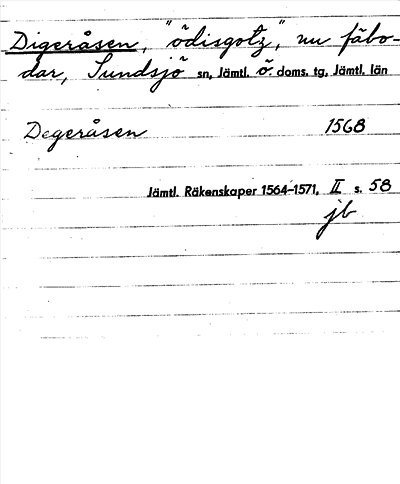 Digeråsen, "ödisgotz," nu fäbo-
dar, Sundsjö sn, Jämtl. ö. doms. tg, Jämtl. län
Degeråsen 1568
Jämtl. Räkenskaper 1564-1571, II s. 58
jb